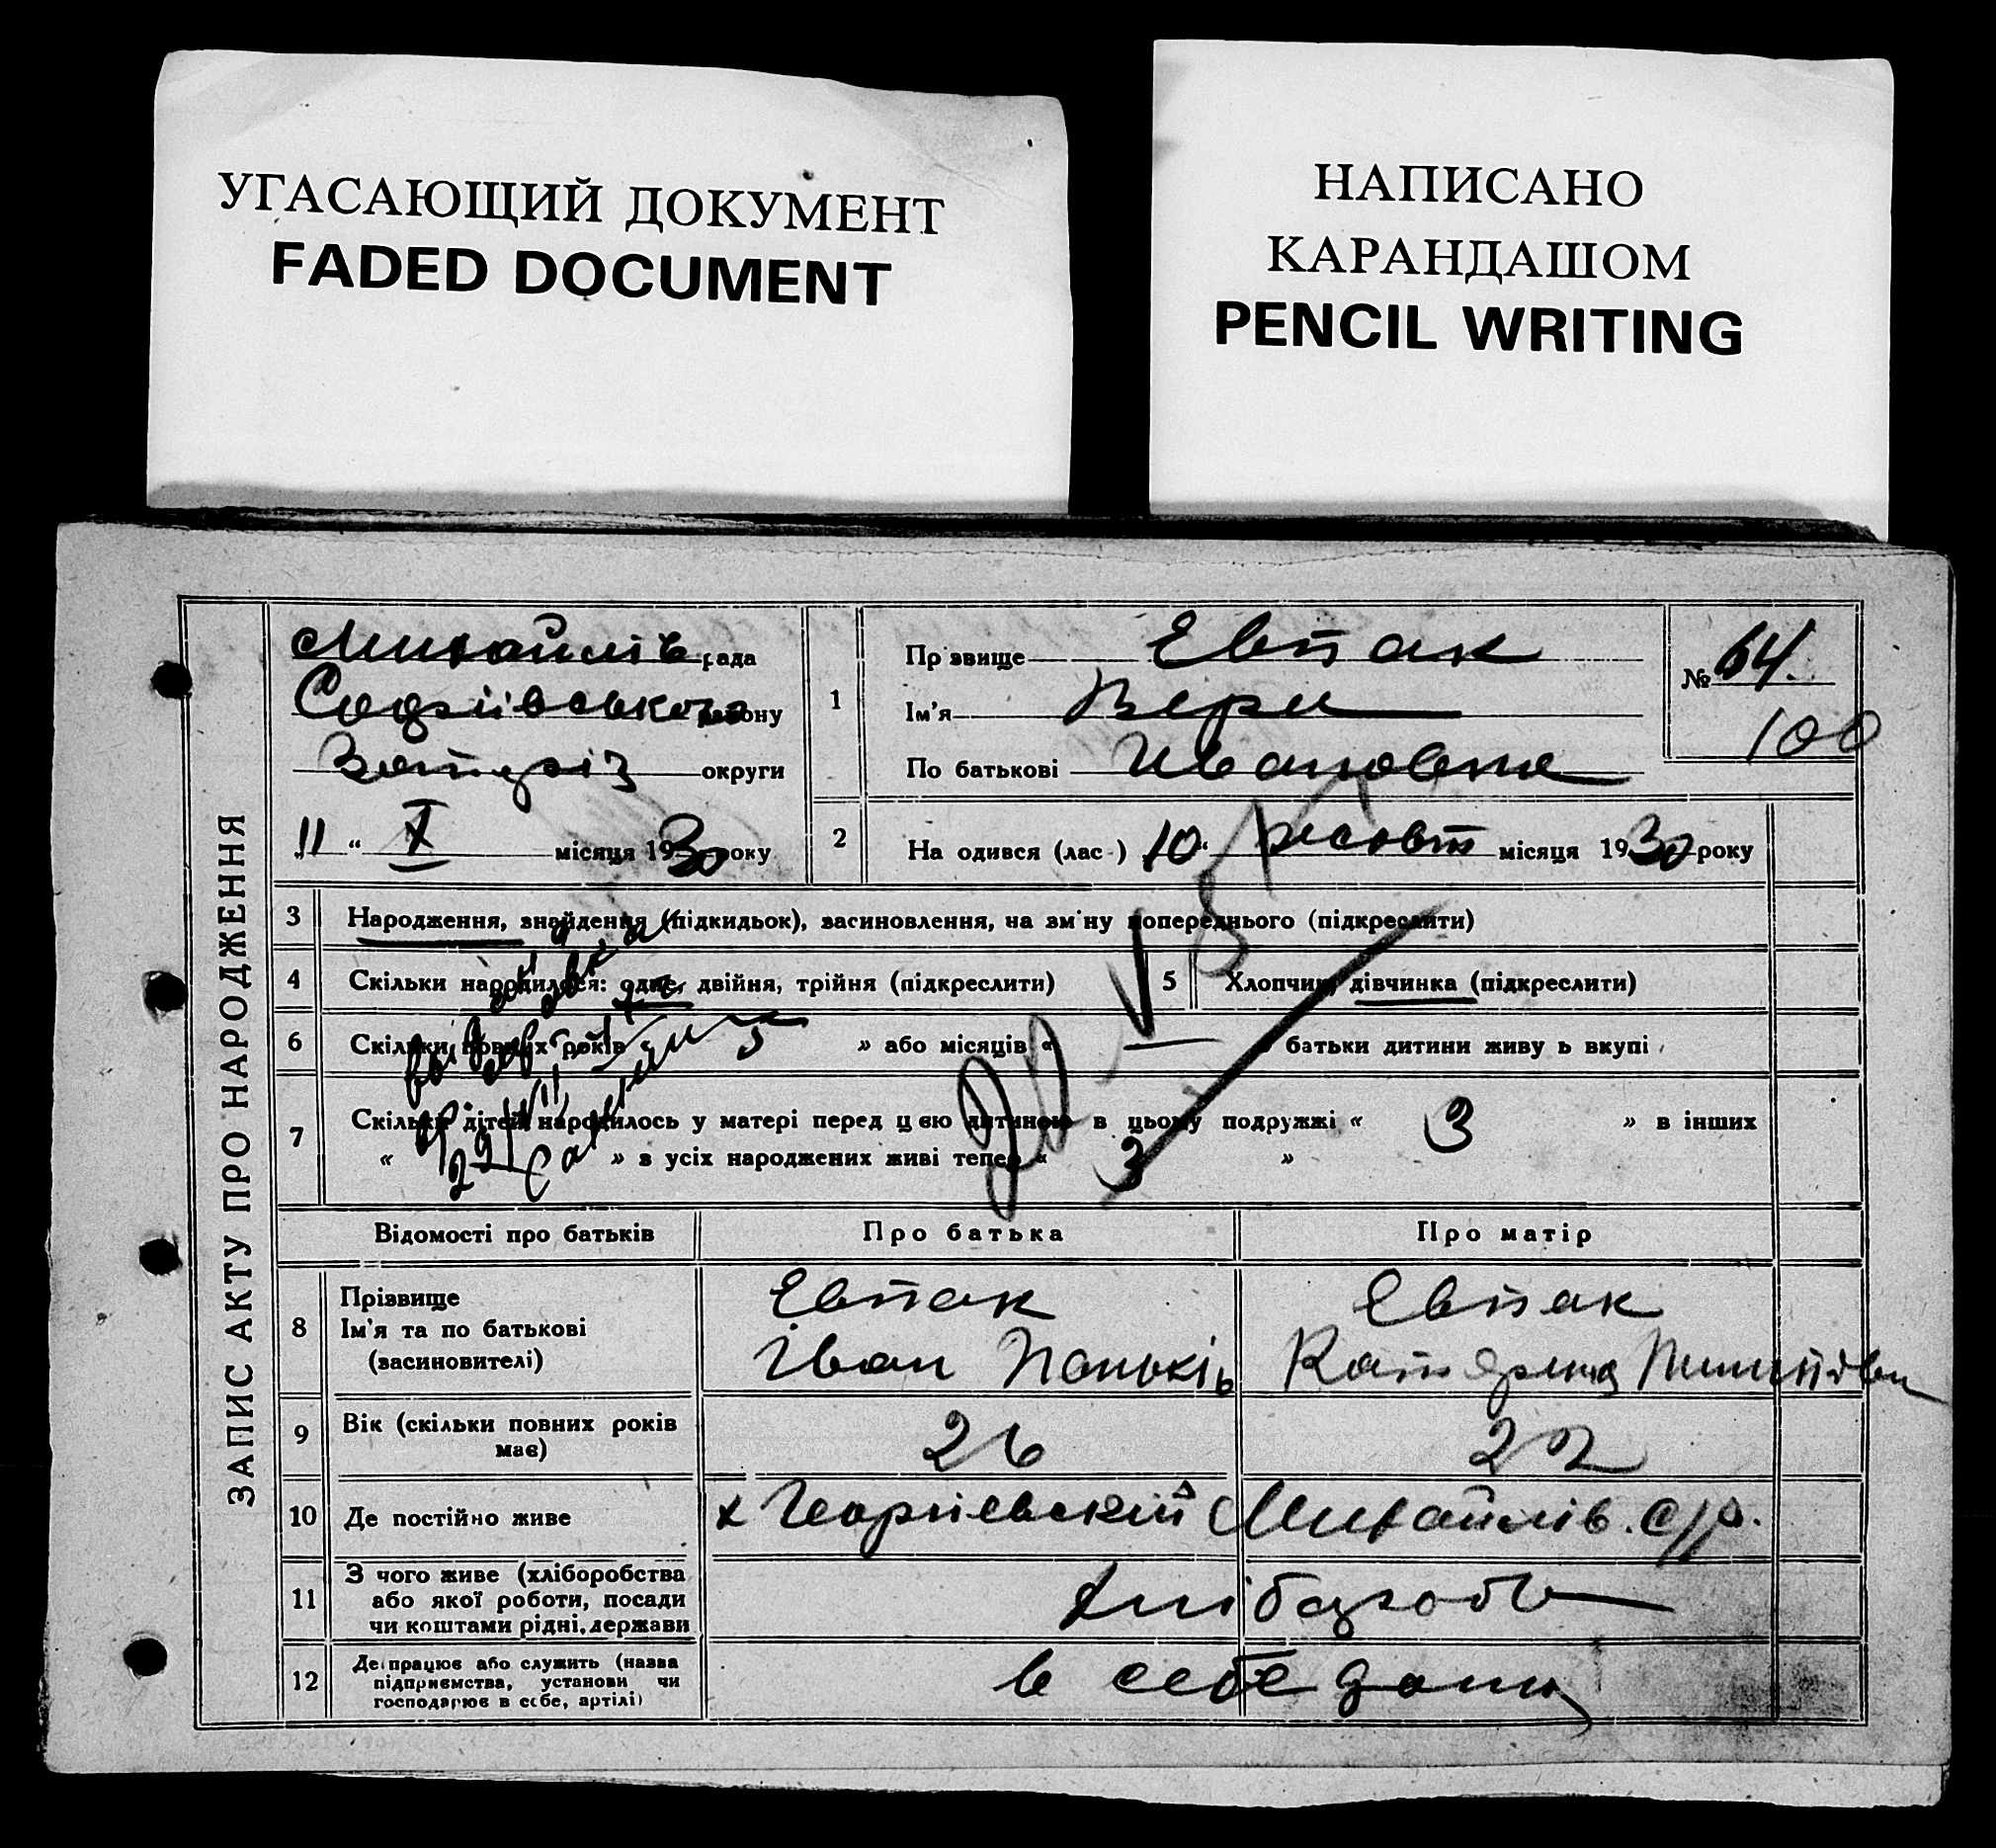 УГАСАЮЩИЙ ДОКУМЕНТ
FADED DOCUMENT
НАПИСАНО
КАРАНДАШОМ
PENCIL WRITING
ЗАПИС АКТУ ПРО НАРОДЖЕННЯ
Михайлів рада
Софіївського району
округи
11 " X місяця 1930 року
1
Прізвище Евпак
Ім'я Вера
По батькові Ивановна
№ 64.
100
2 На одився (лас ) 10 " жовт місяця 1930 року
3 Народження, знайдення (підкидьок), засиновлення, на зм'ну попереднього (підкреслити)
4 Скільки народилося: одне, двійня, трійня (підкреслити) 5 Хлопчик, дівчинка (підкреслити)
6 Скільки повних років « 5 » або місяців « — » батьки дитини живу ь вкупі
7 Скільки дітей народилось у матері перед цєю дитиною в цьому подружжі « 3 » в інших
« » з усіх народжених живі тепер « 3 »
Відомості про батьків Про батька Про матір
8 Прізвище Евпак Евпак
Ім'я та по батькові Іван Паньків Катерина
(засиновителі)
9 Вік (скільки повних років 26 22
має)
10 Де постійно живе х Георгіевский Михайлів. с/р.
11 З чого живе (хліборобства хлібороб
або якої роботи, посади
чи коштами рідні, держави
12 Де працює або служить (назва в себе дома
підприємства, установи чи
господарює в себе, артілі)